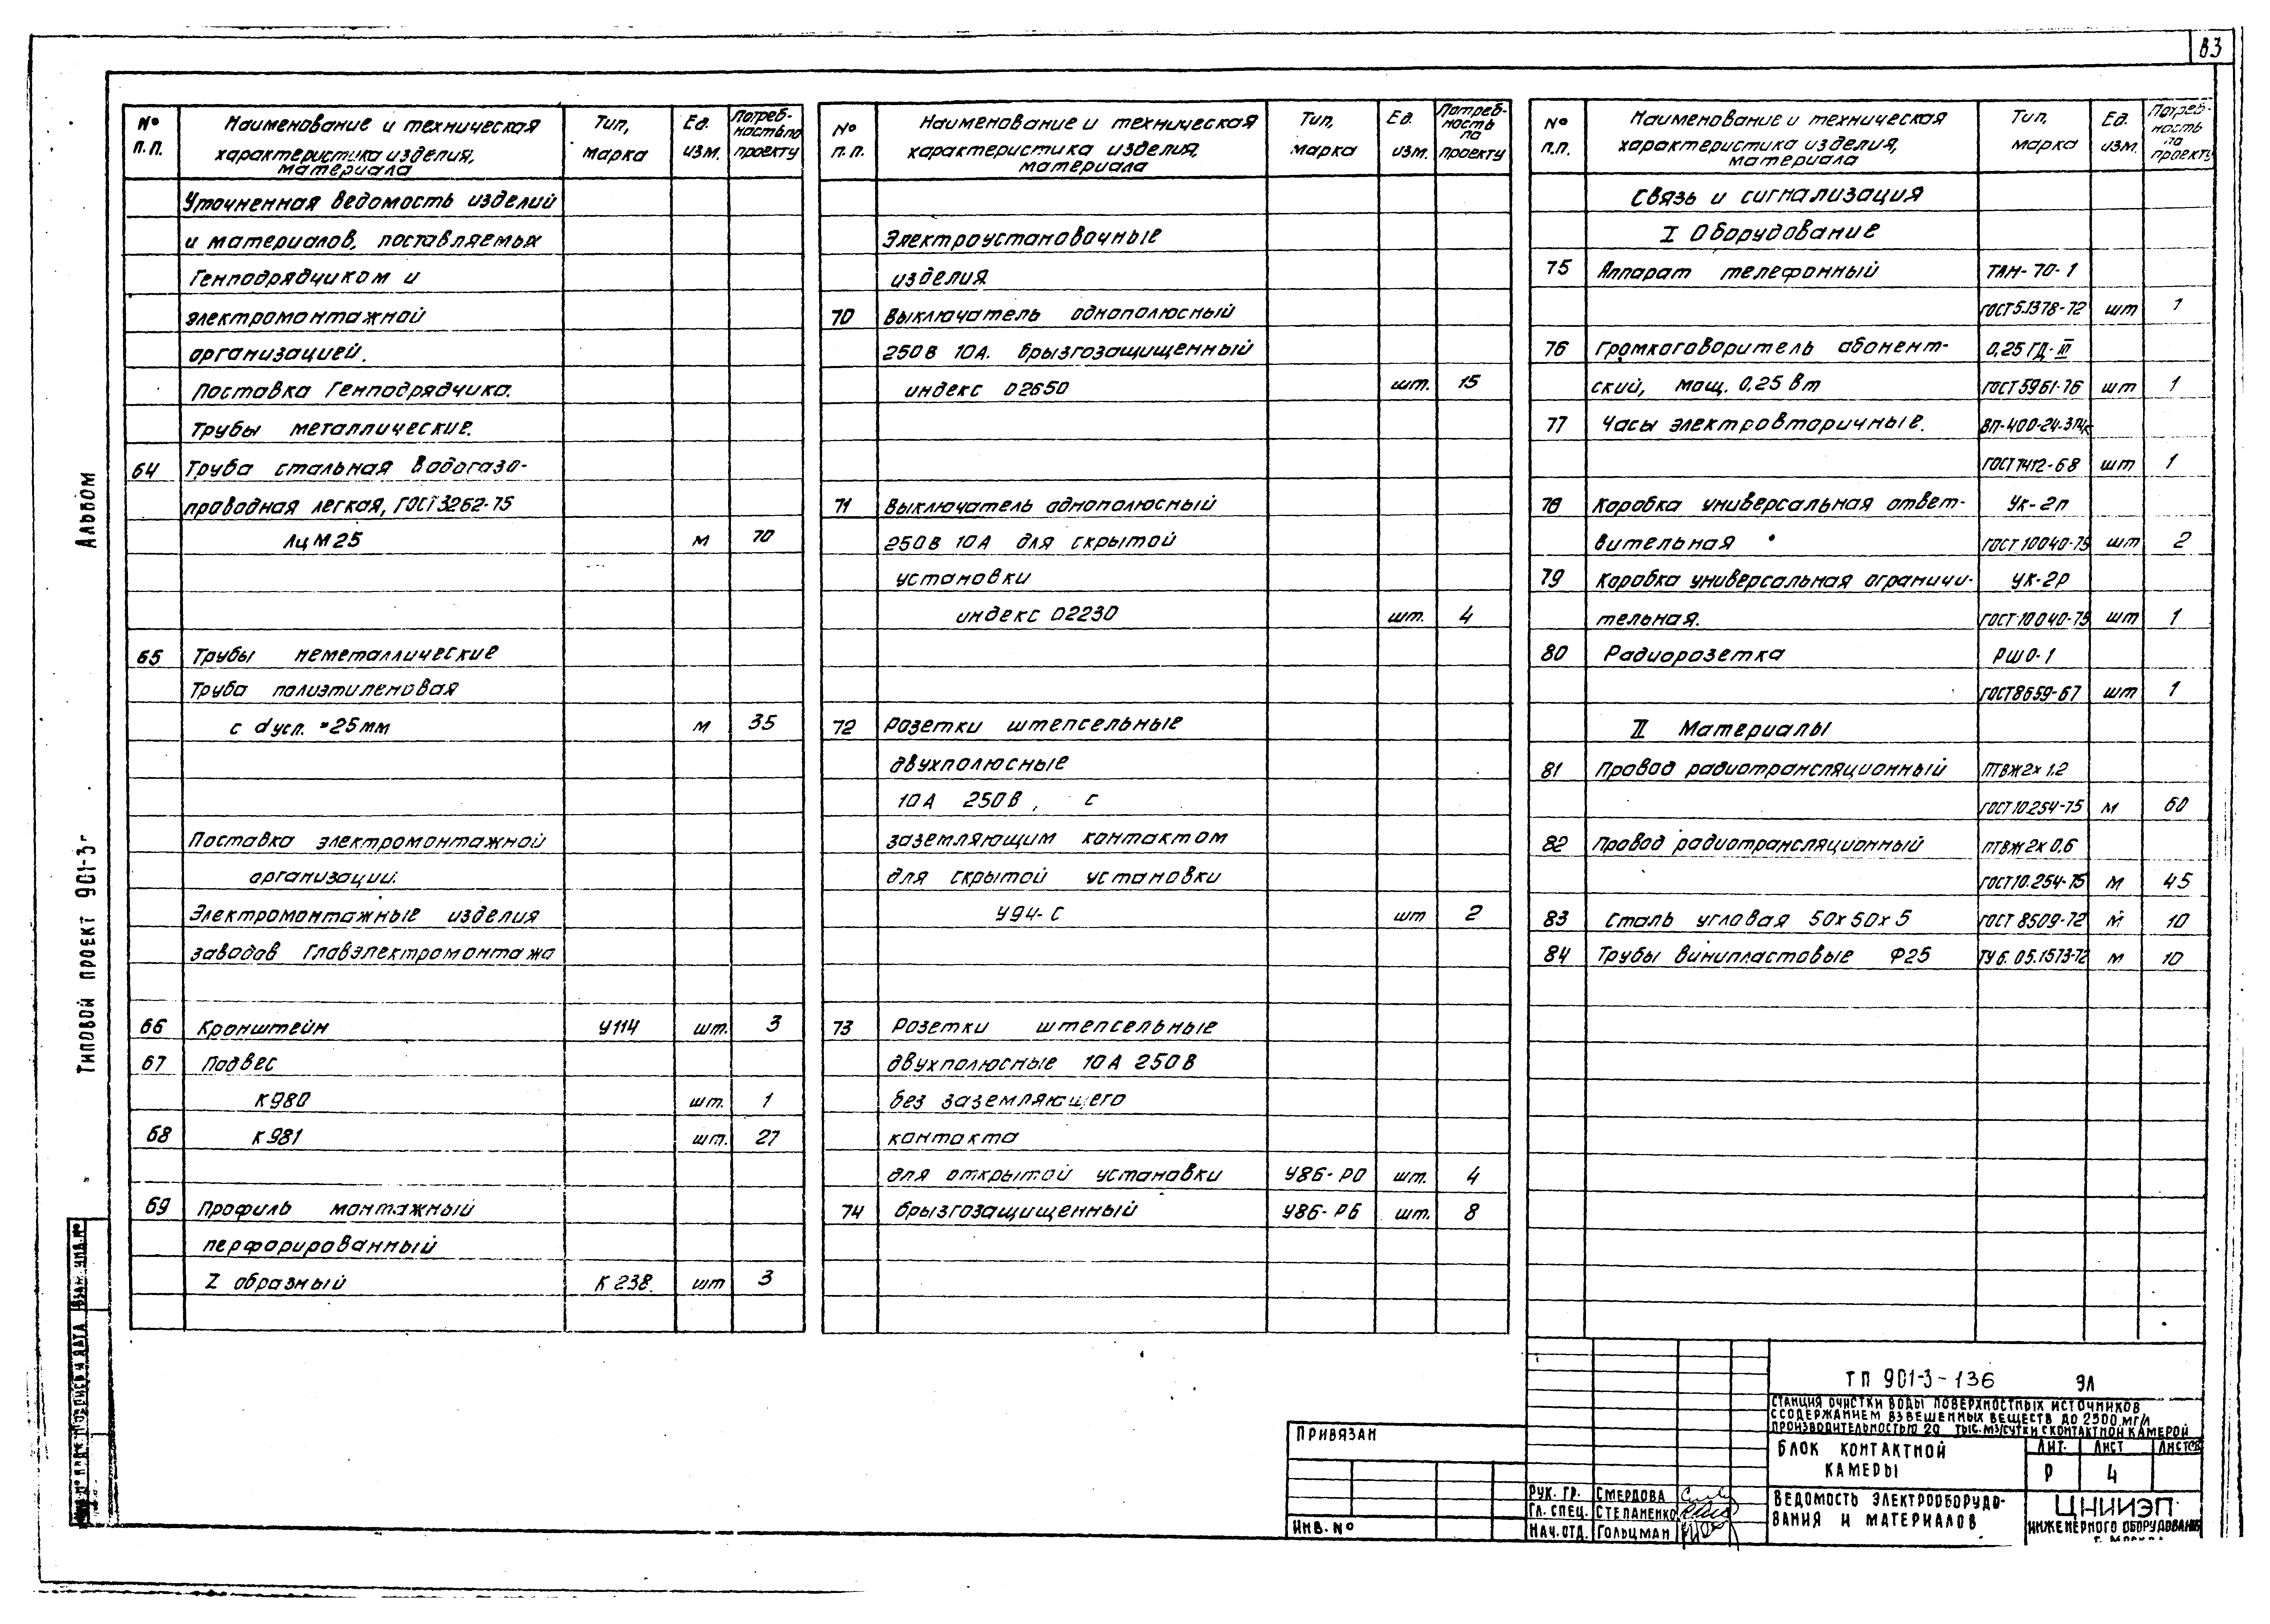 83
№ п.п.
Наименование и техническая
характеристика изделия,
материала
Тип,
марка
Ед.
изм.
Потреб-
ность по
проекту
Уточненная ведомость изделий
и материалов, поставляемых
Генподрядчиком и
электромонтажной
организацией.
Поставка Генподрядчика.
Трубы металлические.
64 Труба стальная водогазо-
проводная легкая, ГОСТ 3262-75
ЛцМ25 м 70
65 Трубы неметаллические
Труба полиэтиленовая
с dусл. =25мм м 35
Поставка электромонтажной
организации.
Электромонтажные изделия
заводов Главэлектромонтажа
66 Кронштейн У114 шт. 3
67 Подвес
К980 шт. 1
68 К981 шт. 27
69 Профиль монтажный
перфорированный
Z образный К238. шт 3
№ п.п.
Наименование и техническая
характеристика изделия,
материала
Тип,
марка
Ед.
изм.
Потреб-
ность
по
проекту
Электроустановочные
изделия
70 Выключатель однополюсный
250В 10А. брызгозащищенный
индекс 02650 шт. 15
71 Выключатель однополюсный
250В 10А для скрытой
установки
индекс 02230 шт. 4
72 Розетки штепсельные
двухполюсные
10А 250В, с
заземляющим контактом
для скрытой установки
У94-С шт 2
73 Розетки штепсельные
двухполюсные 10А 250В
без заземляющего
контакта
для открытой установки У86-РО шт. 4
74 брызгозащищенный У86-РБ шт. 8
№ п.п.
Наименование и техническая
характеристика изделия,
материала
Тип,
марка
Ед.
изм.
Потреб-
ность
по
проекту
Связь и сигнализация
I Оборудование
75 Аппарат телефонный ТАН-70-1
ГОСТ5.1378-72 шт 1
76 Громкоговоритель абонент- 0,25 ГД-III
ский, мощ. 0.25 вт ГОСТ5961-76 шт 1
77 Часы электровторичные.
ГОСТ7412-68 шт 1
78 Коробка универсальная ответ- УК-2п
вительная ГОСТ 10040-75 шт 2
79 Коробка универсальная ограничи- УК-2Р
тельная. ГОСТ 10040-75 шт 1
80 Радиорозетка РШО-1
ГОСТ8659-67 шт 1
II Материалы
81 Провод радиотрансляционный ПТВЖ2х1.2
ГОСТ10.254-75 м 60
82 Провод радиотрансляционный ПТВЖ2х0,6
ГОСТ10.254-75 м 45
83 Сталь угловая 50х50х5 ГОСТ 8509-72 м 10
84 Трубы винипластовые Ф25 ТУ6.05.1573-72 м 10
Альбом
Типовой проект 901-3-
Взам. инв.№
Подпись и дата
Привязан
Инв. №
Рук. гр. Смердова
Гл. спец. Степаненко
Нач. отд. Гольцман
ТП 901-3-136 ЭЛ
Станция очистки воды поверхностных источников
с содержанием взвешенных веществ до 2500 мг/л
производительностью 20 тыс.м3/сутки с контактной камерой
Блок контактной
камеры
Лит. Лист Листов
Р 4
Ведомость электрооборудо-
вания и материалов
ЦНИИЭП
инженерного оборудования
г. Москва